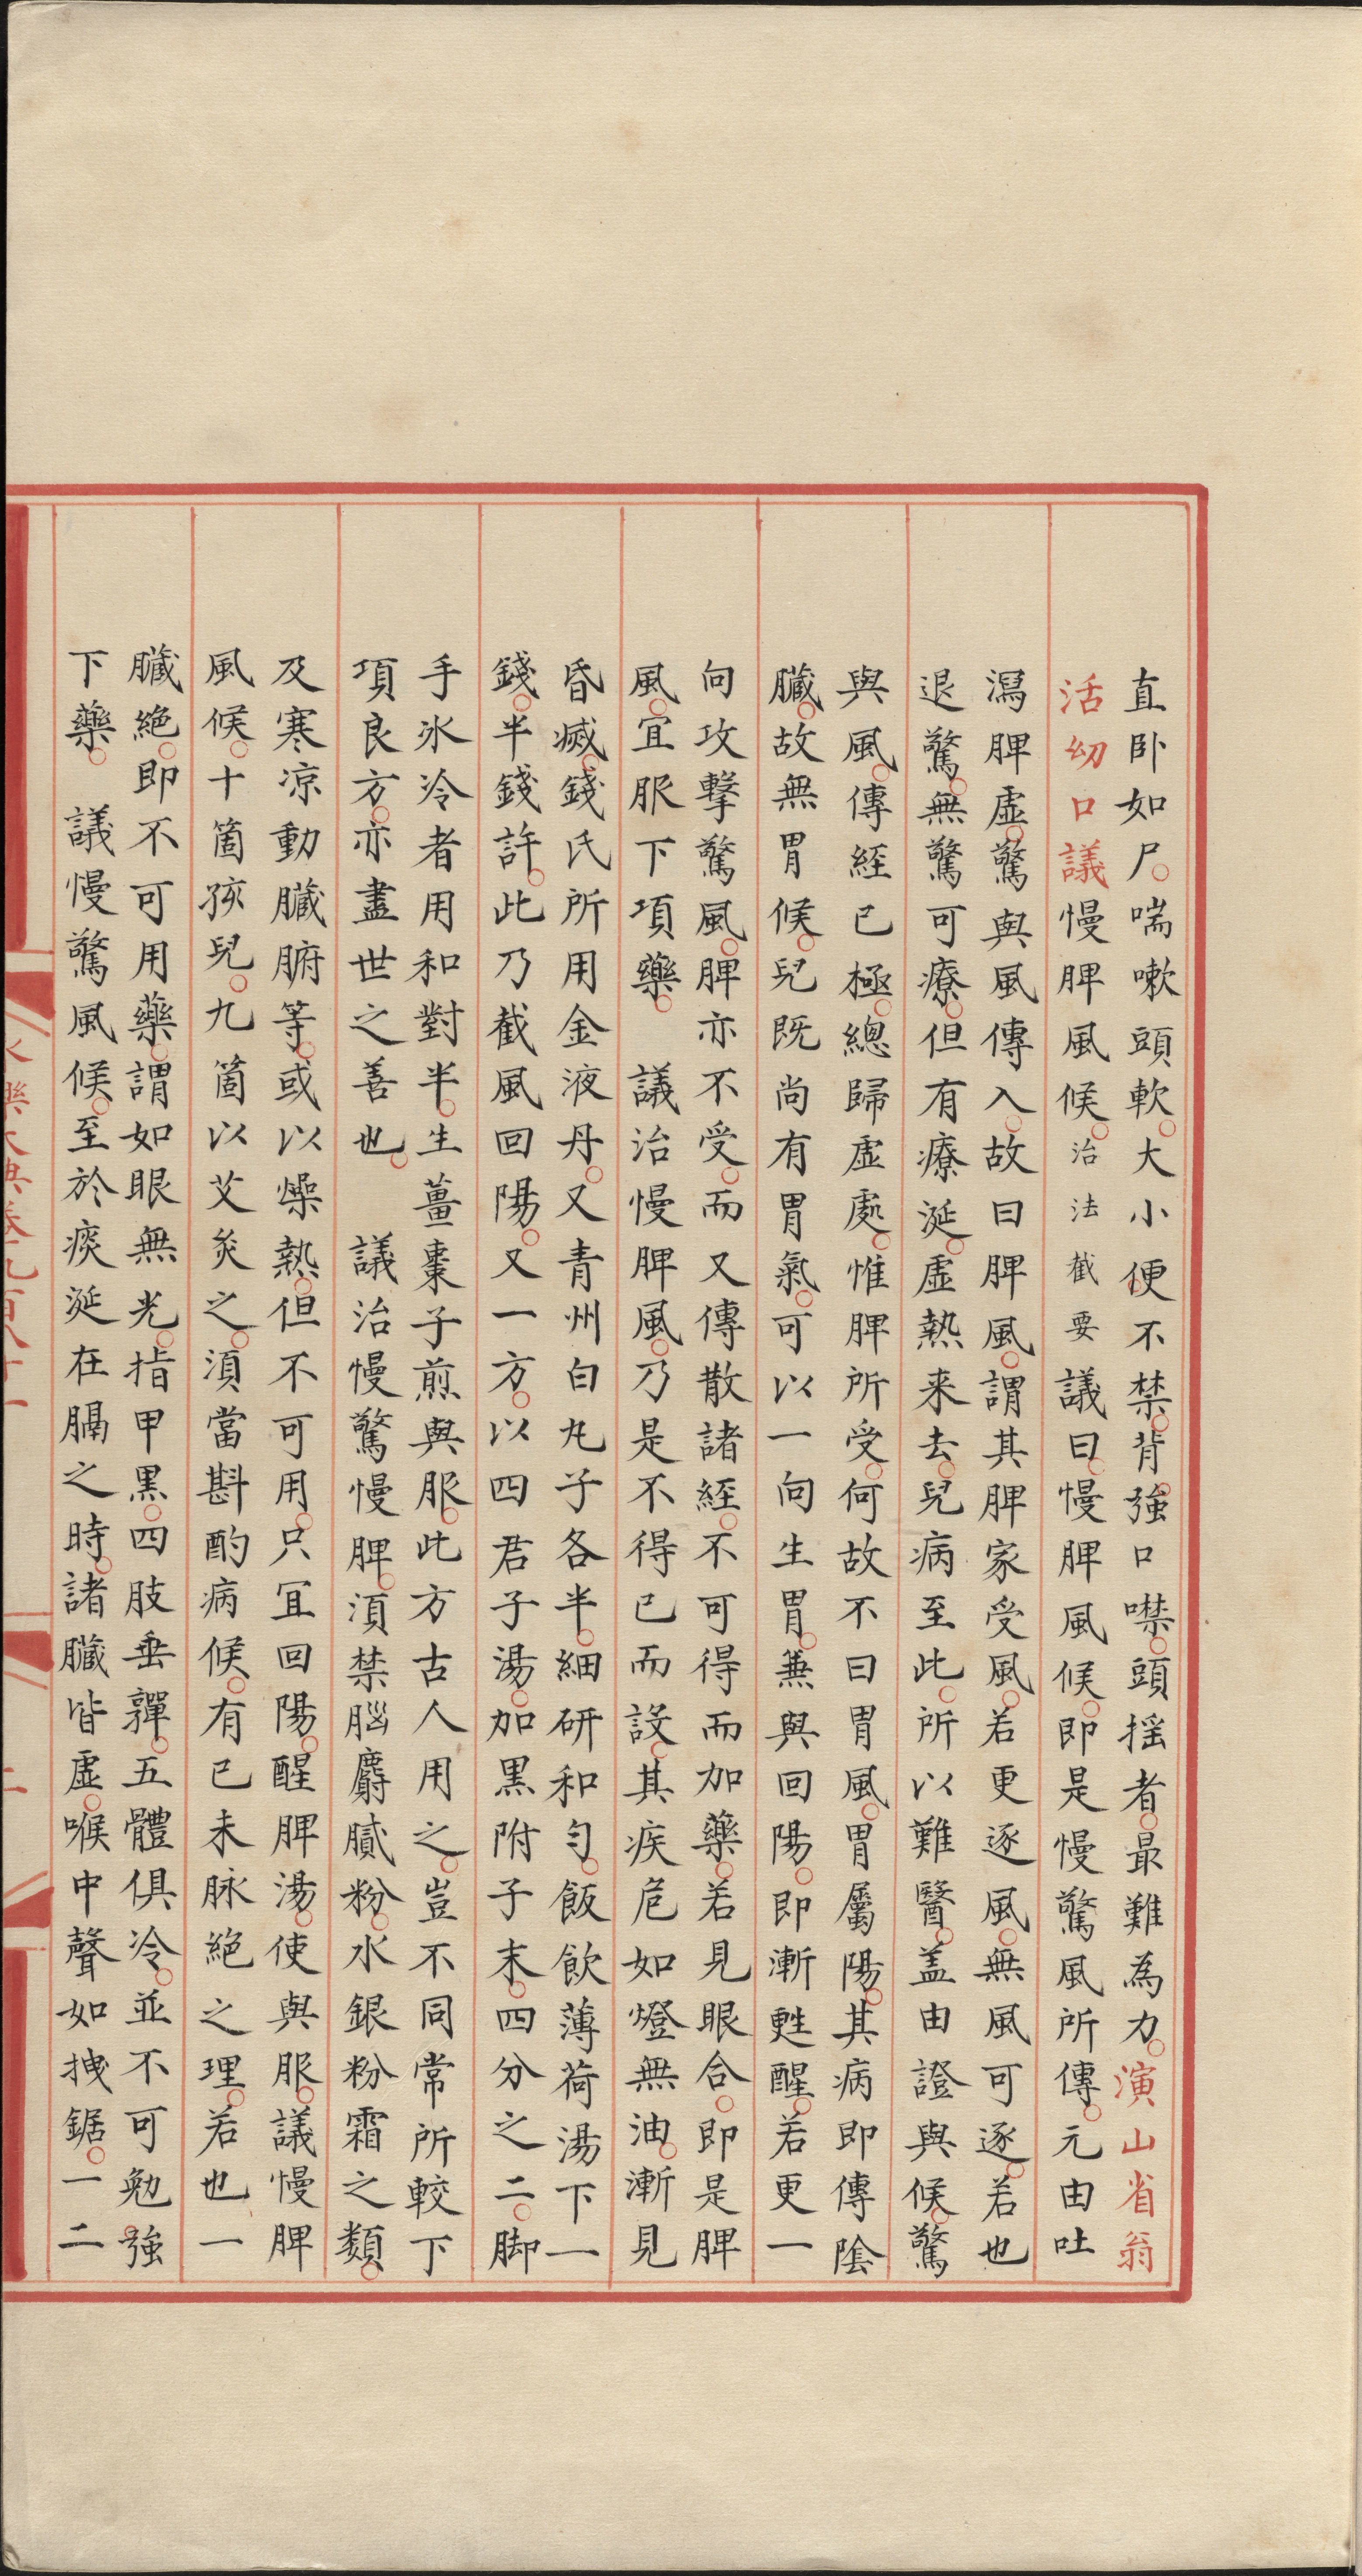 直卧如尸。喘嗽頭軟。大小便不禁。背強口噤。頭摇者。最難為力。演山省翁
活幼口議慢脾風候。治法截要議曰。慢脾風候。即是慢驚風所傳。元由吐
瀉脾虛。驚與風傳入。故曰脾風。謂其脾家受風。若更逐風。無風可逐。若也
退驚。無驚可療。但有療涎。虛熱来去。兒病至此。所以難醫。盖由證與候。驚
與風。傳経已極。總歸虛處。惟脾所受。何故不曰胃風。胃屬陽。其病即傳隂
臓。故無胃候。兒既尚有胃氣。可以一向生胃。兼與回陽。即漸甦醒。若更一
向攻擊驚風。脾亦不受。而又傳散諸経。不可得而加藥。若見眼合。即是脾
風。宜服下項藥。 議治慢脾風。乃是不得已而設。其疾危如燈無油。漸見
昏㓕。錢氏所用金液丹。又青州白丸子各半。細研和勻。飯飲薄荷湯下一
錢。半錢許。此乃截風回陽。又一方。以四君子湯。加黑附子末。四分之二。脚
手氷冷者用和對半。生薑棗子煎與服。此方古人用之。豈不同常所較下
項良方。亦盡世之善也。 議治慢驚慢脾。湏禁腦麝膩粉。水銀粉霜之類。
及寒凉動臓腑等。或以燥熱。但不可用。只宜回陽。醒脾湯。使與服。議慢脾
風候。十箇孩兒。九箇以艾灸之。湏當斟酌病候。有已未脉絕之理。若也一
臓絕。即不可用藥。謂如眼無光。指甲黑。四肢垂嚲。五體俱冷。並不可勉強
下藥。 議慢驚風候。至於痰涎在膈之時。諸臓皆虛。喉中聲如拽鋸。一二
永樂大典卷九百八十一
二